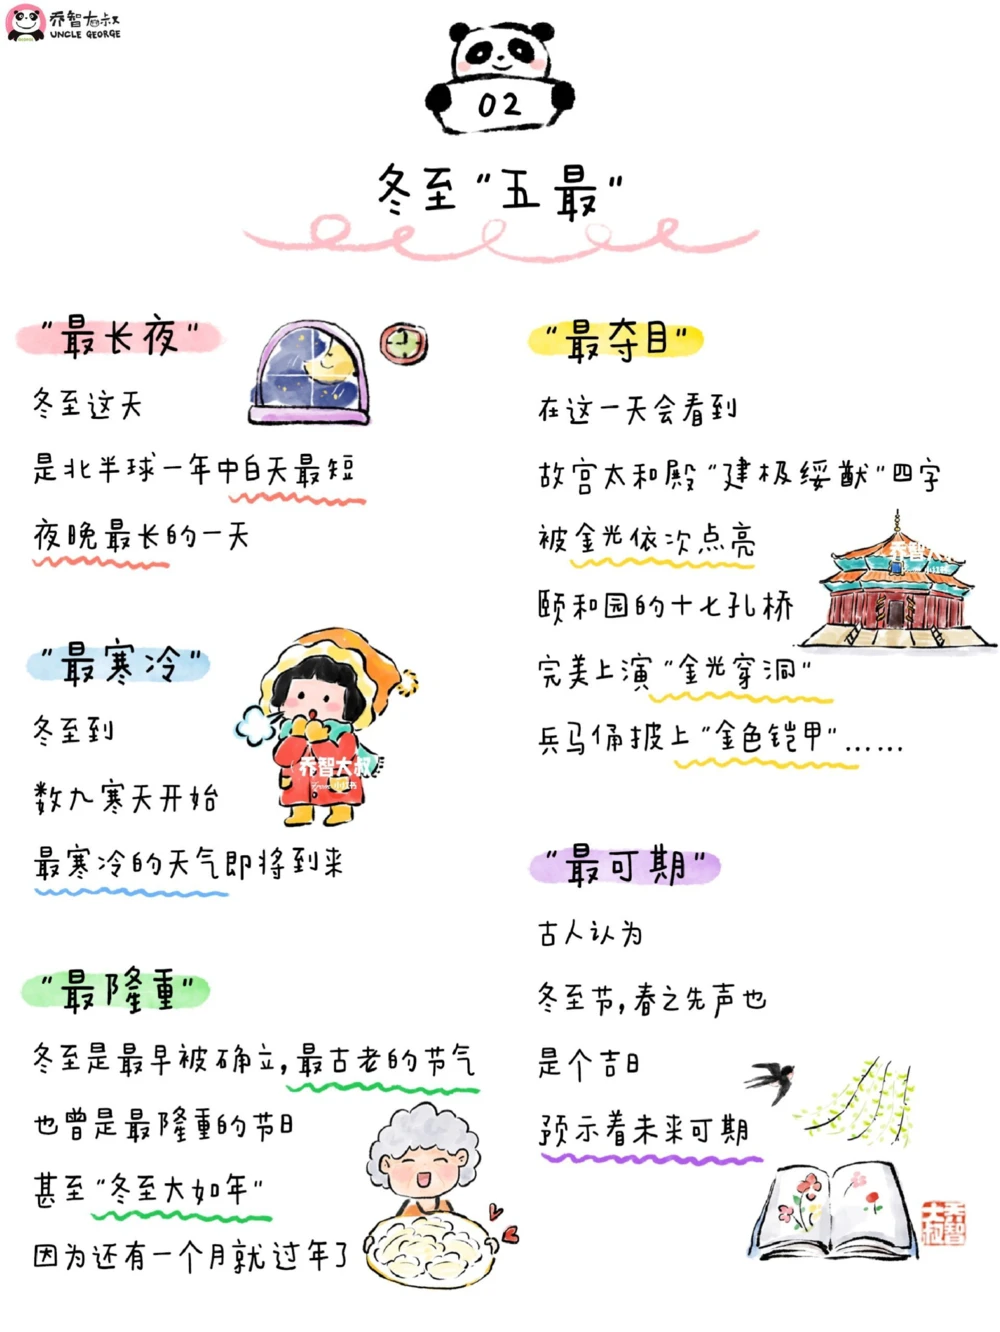 乔智大叔
UNCLE GEORGE
02
冬至"五最"
"最长夜"
冬至这天
是北半球一年中白天最短
夜晚最长的一天
"最寒冷"
冬至到
数九寒天开始
最寒冷的天气即将到来
乔智大叔
"最隆重"
冬至是最早被确立,最古老的节气
也曾是最隆重的节日
甚至"冬至大如年"
因为还有一个月就过年了
"最夺目"
在这一天会看到
故宫太和殿"建极绥猷"四字
被金光依次点亮
颐和园的十七孔桥
完美上演"金光穿洞"
兵马俑披上"金色铠甲"……
乔智大叔
"最可期"
古人认为
冬至节,春之先声也
是个吉日
预示着未来可期
乔智大叔